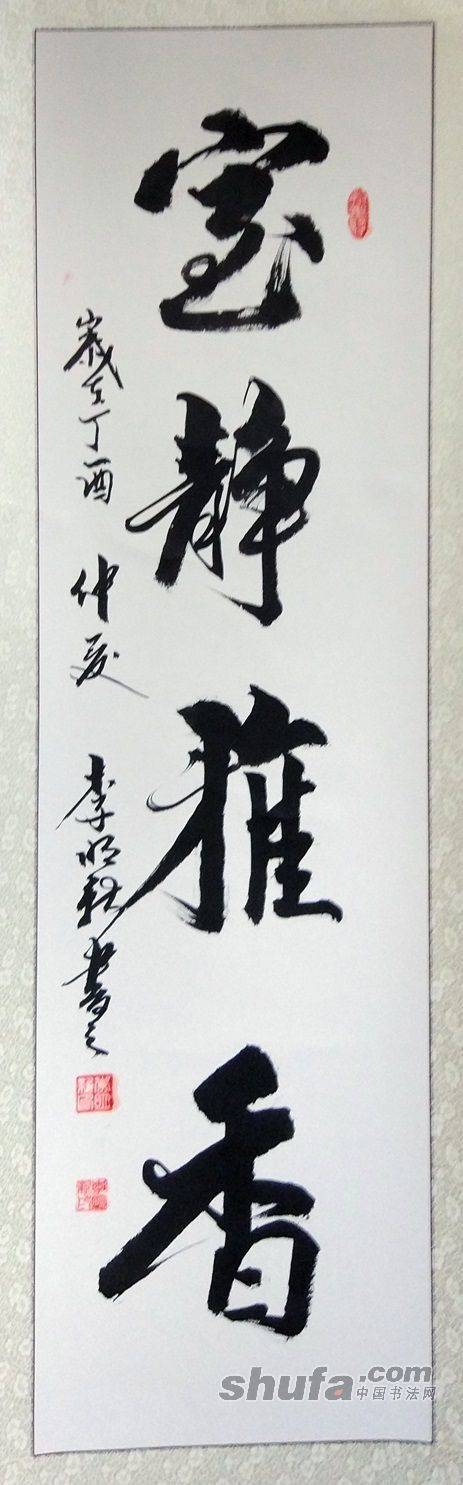 室静雅香
岁在丁酉 仲夏 李明秋书之
shufa.com
中国书法网